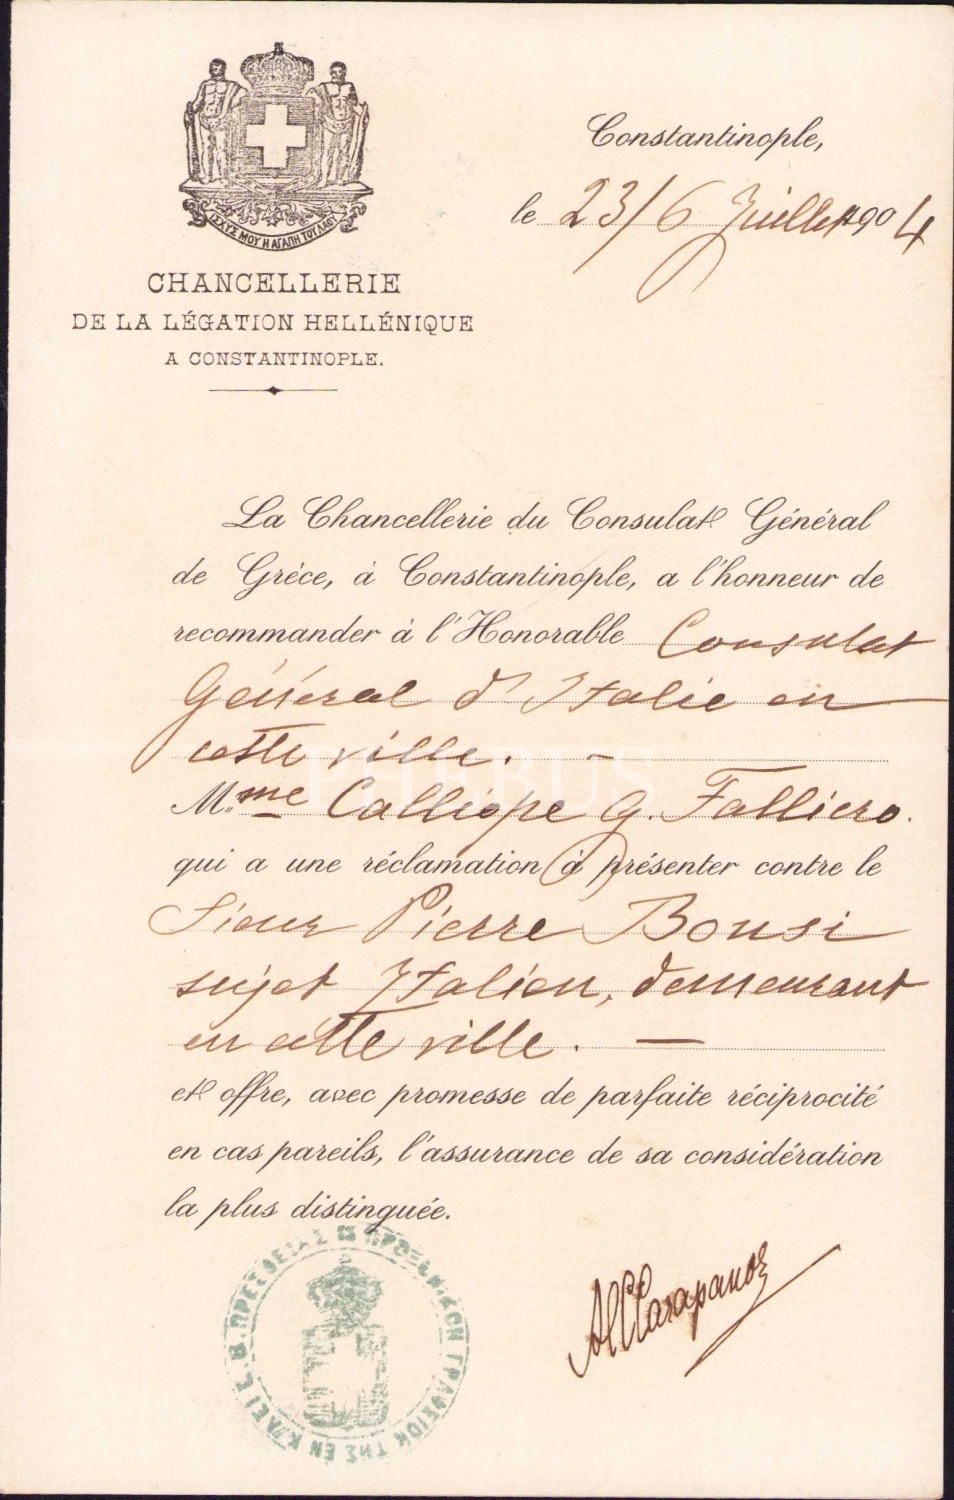 ΙΣΧΥΣ ΜΟΥ Η ΑΓΑΠΗ ΤΟΥ ΛΑΟΥ
CHANCELLERIE
DE LA LÉGATION HELLÉNIQUE
A CONSTANTINOPLE.
Constantinople,
le 23/6 Juillet 1904
La Chancellerie du Consulat Général
de Grèce, à Constantinople, a l'honneur de
recommander à l'Honorable Consulat
Général d'Italie en
cette ville. —
PHEBUS
M.me Calliope G. Falliero.
qui a une réclamation à présenter contre le
Sieur Pierre Bousi
sujet Italien, demeurant
en cette ville. —
et offre, avec promesse de parfaite réciprocité
en cas pareils, l'assurance de sa considération
la plus distinguée.
ΠΡΟΞΕΝΙΚΟΝ ΓΡΑΦΕΙΟΝ ΤΗΣ ΕΝ Β. ΠΡΕΣΒΕΙΑΣ